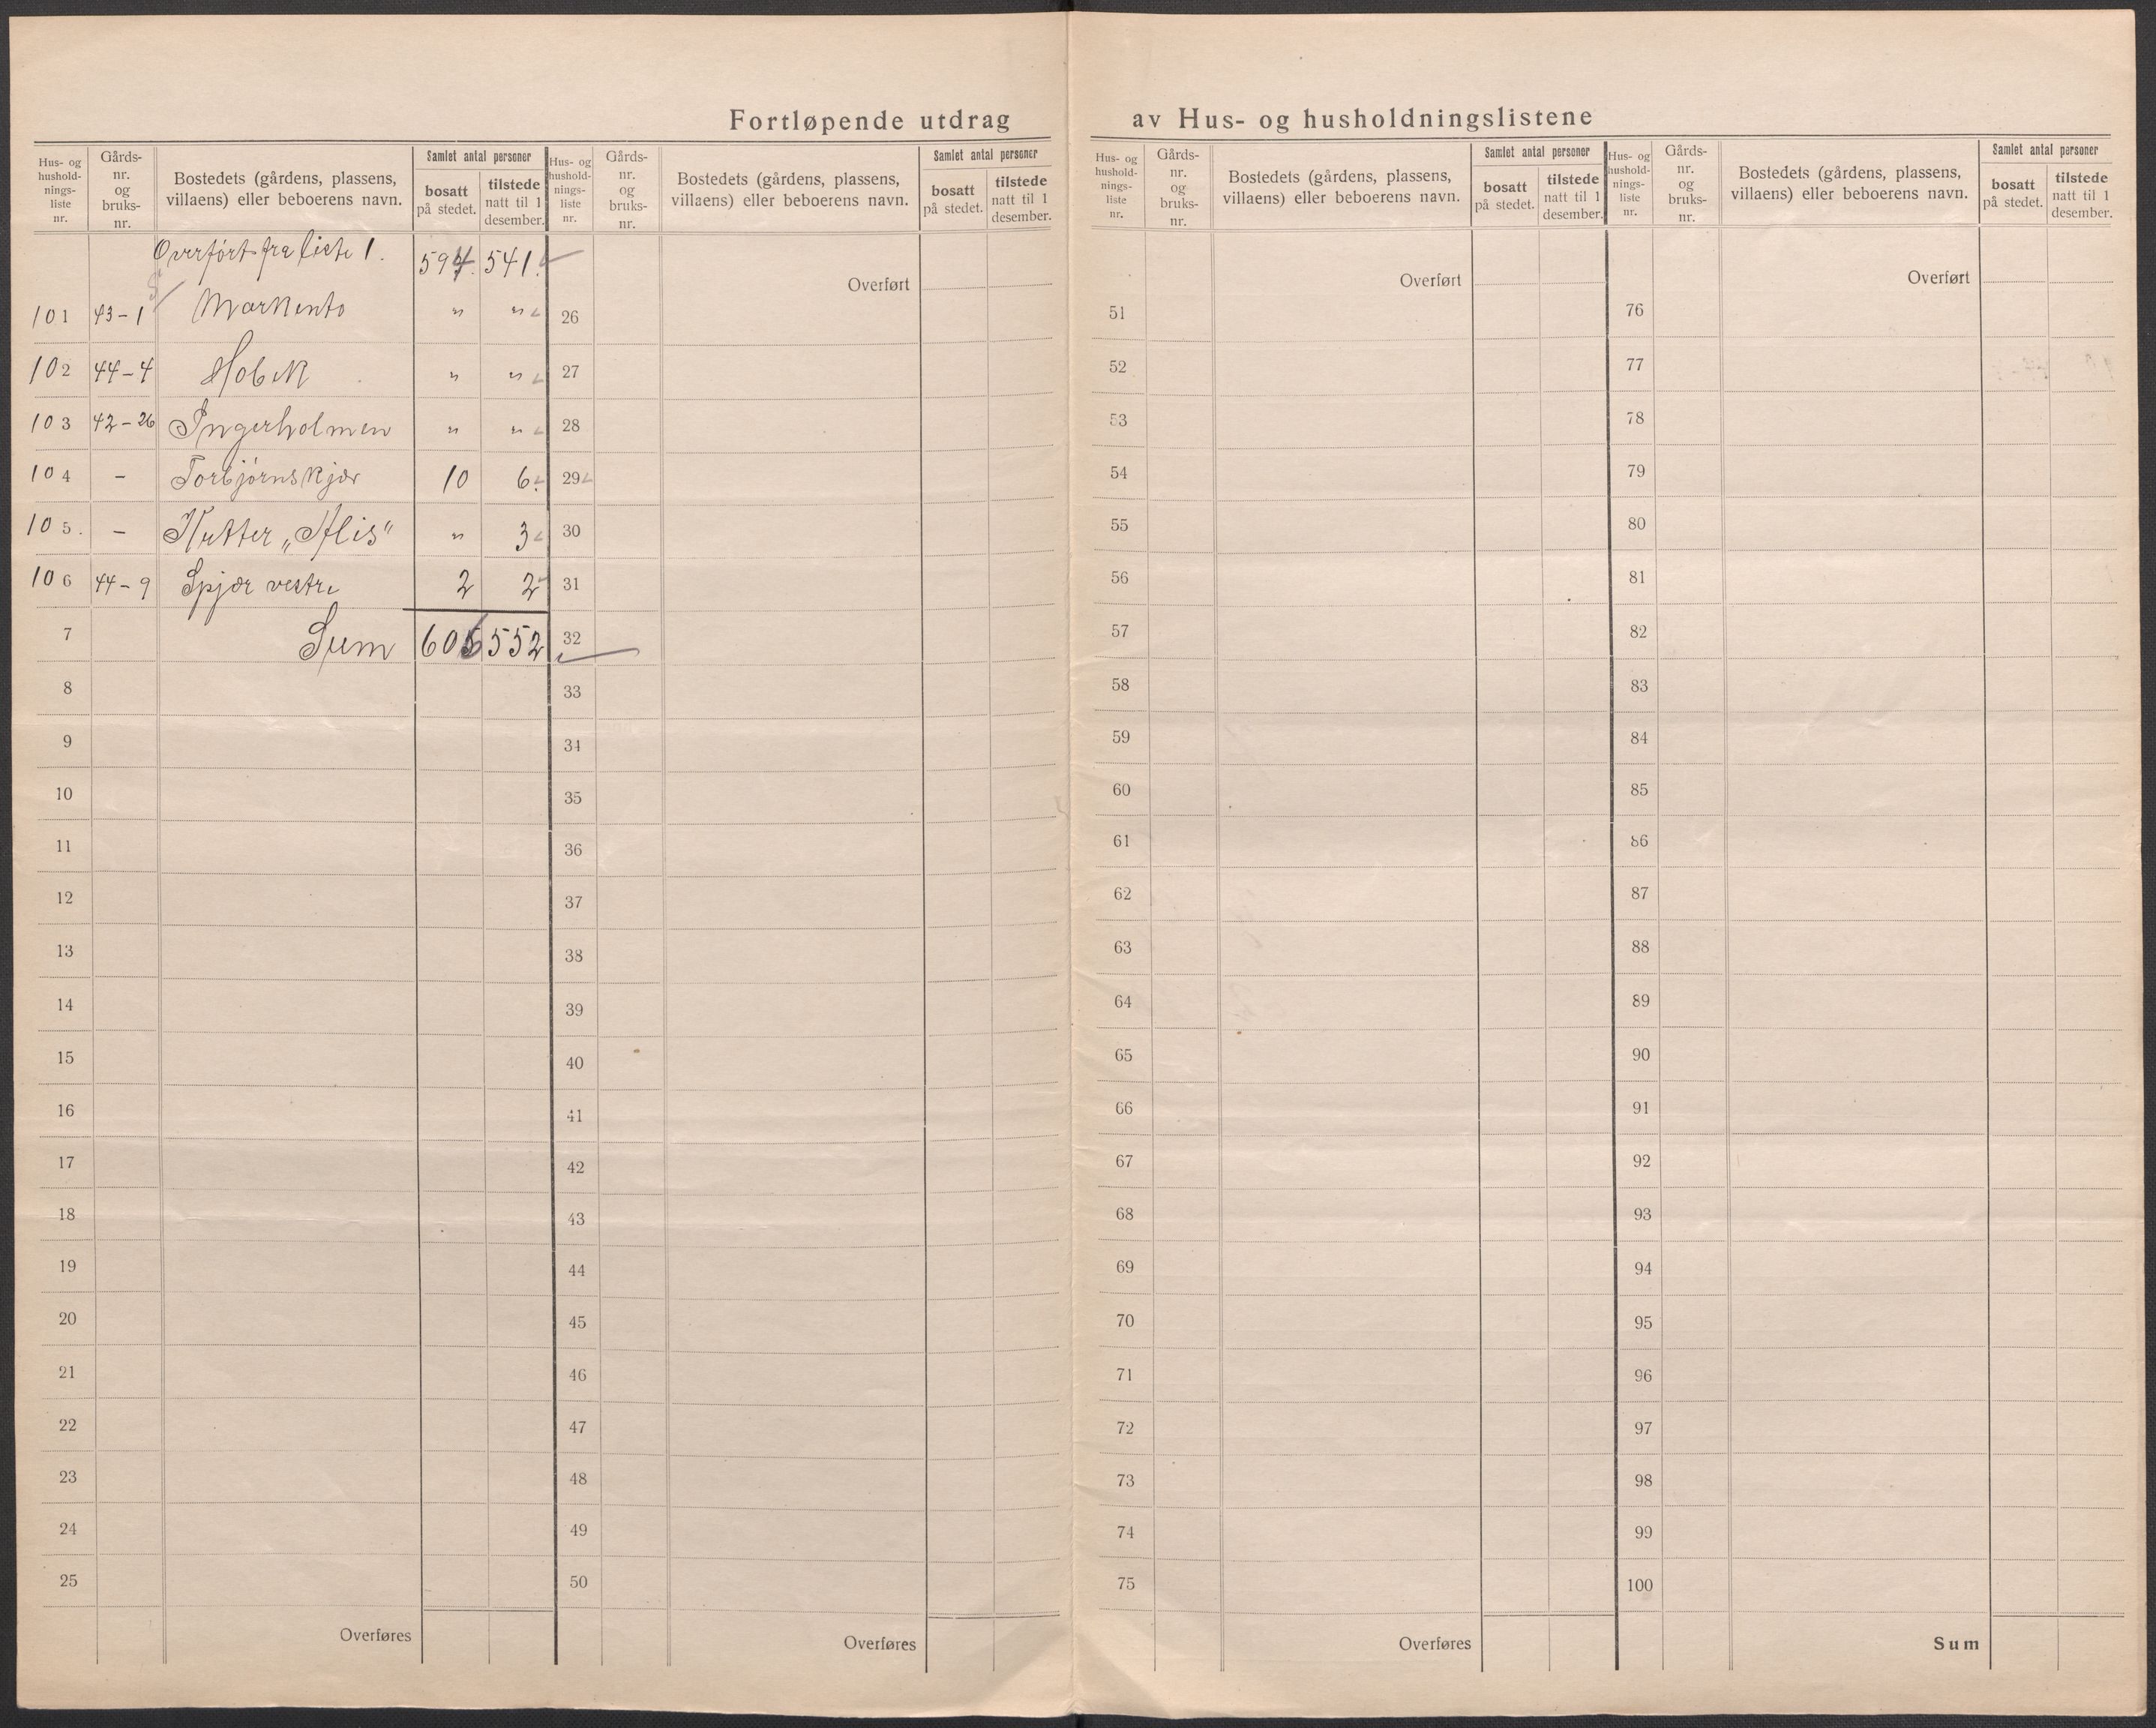 Fortløpende utdrag av Hus- og husholdningslistene
Hus- og husholdnings-liste nr. | Gårds-nr. og bruks-nr. | Bostedets (gårdens, plassens, villaens) eller beboerens navn. | Samlet antal personer | bosatt på stedet. | tilstede natt til 1 desember.
Overført fra liste 1. 594. 541.
101 43-1 Markento " "
102 44-4 Hobæk " "
103 42-26 Ingerholmen " "
104 - Torbjørnskjær 10 6
105. - Kutter „Alis" " 3
106 44-9 Spjær vestre 2 2
7 Sum 606 552
8
9
10
11
12
13
14
15
16
17
18
19
20
21
22
23
24
25
Overføres
Hus- og husholdnings-liste nr. | Gårds-nr. og bruks-nr. | Bostedets (gårdens, plassens, villaens) eller beboerens navn. | Samlet antal personer | bosatt på stedet. | tilstede natt til 1 desember.
Overført
26
27
28
29
30
31
32
33
34
35
36
37
38
39
40
41
42
43
44
45
46
47
48
49
50
Overføres
Hus- og husholdnings-liste nr. | Gårds-nr. og bruks-nr. | Bostedets (gårdens, plassens, villaens) eller beboerens navn. | Samlet antal personer | bosatt på stedet. | tilstede natt til 1 desember.
Overført
51
52
53
54
55
56
57
58
59
60
61
62
63
64
65
66
67
68
69
70
71
72
73
74
75
Overføres
Hus- og husholdnings-liste nr. | Gårds-nr. og bruks-nr. | Bostedets (gårdens, plassens, villaens) eller beboerens navn. | Samlet antal personer | bosatt på stedet. | tilstede natt til 1 desember.
Overført
76
77
78
79
80
81
82
83
84
85
86
87
88
89
90
91
92
93
94
95
96
97
98
99
100
Sum